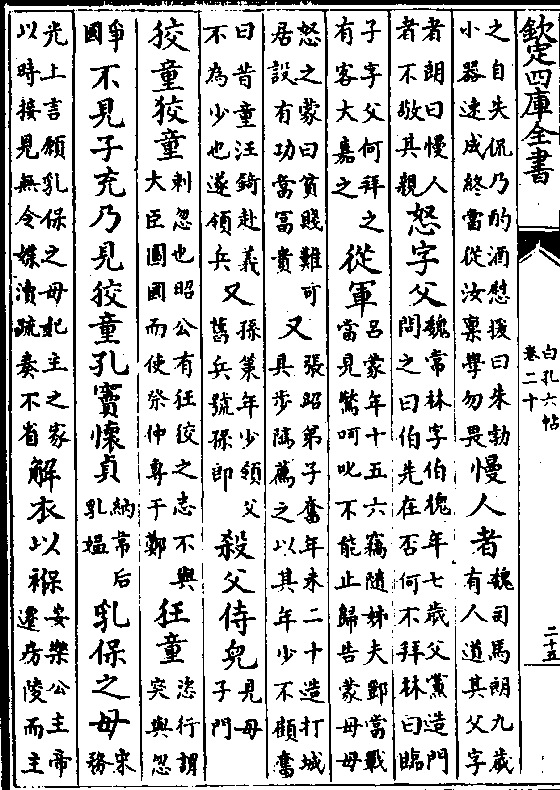 欽定四庫全書
白孔六帖
卷二十
二十五
之自失侃乃酌酒慰援曰朱勃
小器速成終當從汝稟學勿畏
慢人者
魏司馬朗九歲
有人道其父字
者朗曰慢人
者不敬其親
怒字父
魏常林字伯槐年七歲父黨造門
問之曰伯先在否何不拜林曰臨
子字父何拜之
有客大嘉之
從軍
呂蒙年十五六竊隨姊夫鄧當戰
當見驚呵叱不能止歸告蒙母母
怒之蒙曰貧賤難可
居設有功當富貴
又
張昭弟子奮年未二十造打城
具步隲薦之以其年少不顧奮
曰昔童汪錡赴義
不為少也遂領兵
又
孫策年少領父
舊兵號孫郎
殺父侍兒
見母
子門
狡童狡童
刺忽也昭公有狂狡之志不與
大臣圖國而使祭仲專于鄭
狂童
恣行謂
突與忽
爭
國
不見子充乃見狡童孔竇懷貞
納韋后
乳媼
乳保之母
宋
務
光上言願乳保之母妃主之家
以時接見無令媟瀆疏奏不省
解衣以褓
安樂公主帝
遷房陵而主